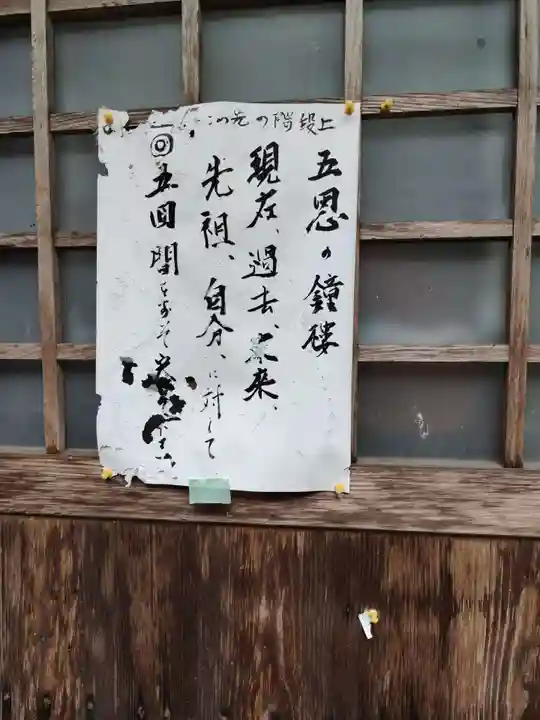 この先の階段上
五恩の鐘楼
現在、過去、未来、
先祖、自分、に対して
◎五回間をおいて